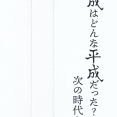 成はどんな平成だった？
次の時代